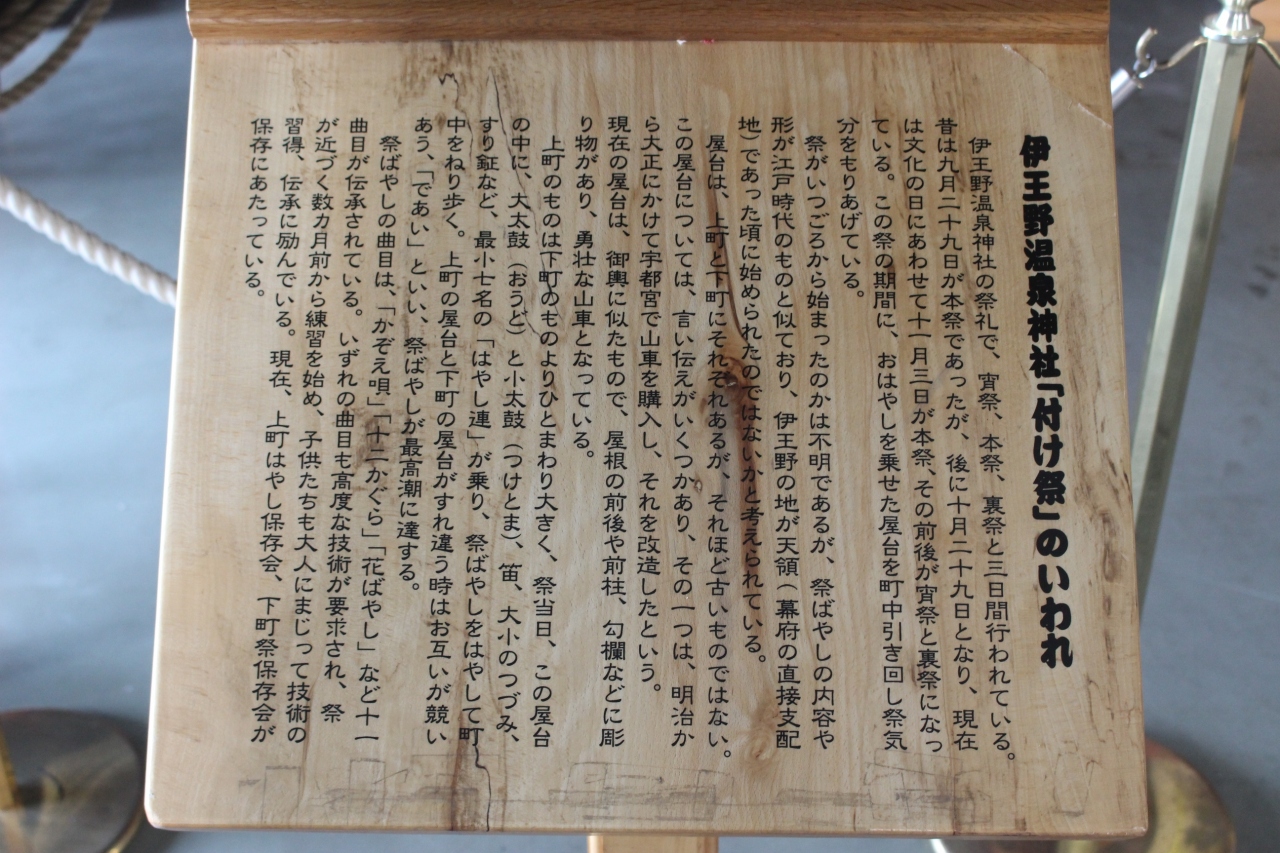 伊王野温泉神社「付け祭」のいわれ
伊王野温泉神社の祭礼で、宵祭、本祭、裏祭と三日間行われている。
昔は九月二十九日が本祭であったが、後に十月二十九日となり、現在
は文化の日にあわせて十一月三日が本祭、その前後が宵祭と裏祭になっ
ている。この祭の期間に、おはやしを乗せた屋台を町中引き回し祭気
分をもりあげている。
祭がいつごろから始まったのかは不明であるが、祭ばやしの内容や
形が江戸時代のものと似ており、伊王野の地が天領(幕府の直接支配
地)であった頃に始められたのではないかと考えられている。
屋台は、上町と下町にそれぞれあるが、それほど古いものではない。
この屋台については、言い伝えがいくつかあり、その一つは、明治か
ら大正にかけて宇都宮で山車を購入し、それを改造したという。
現在の屋台は、御輿に似たもので、屋根の前後や前柱、勾欄などに彫
り物があり、勇壮な山車となっている。
上町のものは下町のものよりひとまわり大きく、祭当日、この屋台
の中に、大太鼓(おうど)と小太鼓(つけとま)、笛、大小のつづみ、
すり鉦など、最小七名の「はやし連」が乗り、祭ばやしをはやして町
中をねり歩く。上町の屋台と下町の屋台がすれ違う時はお互いが競い
あう、「であい」といい、祭ばやしが最高潮に達する。
祭ばやしの曲目は、「かぞえ唄」「十二かぐら」「花ばやし」など十一
曲目が伝承されている。いずれの曲目も高度な技術が要求され、祭
が近づく数カ月前から練習を始め、子供たちも大人にまじって技術の
習得、伝承に励んでいる。現在、上町はやし保存会、下町祭保存会が
保存にあたっている。